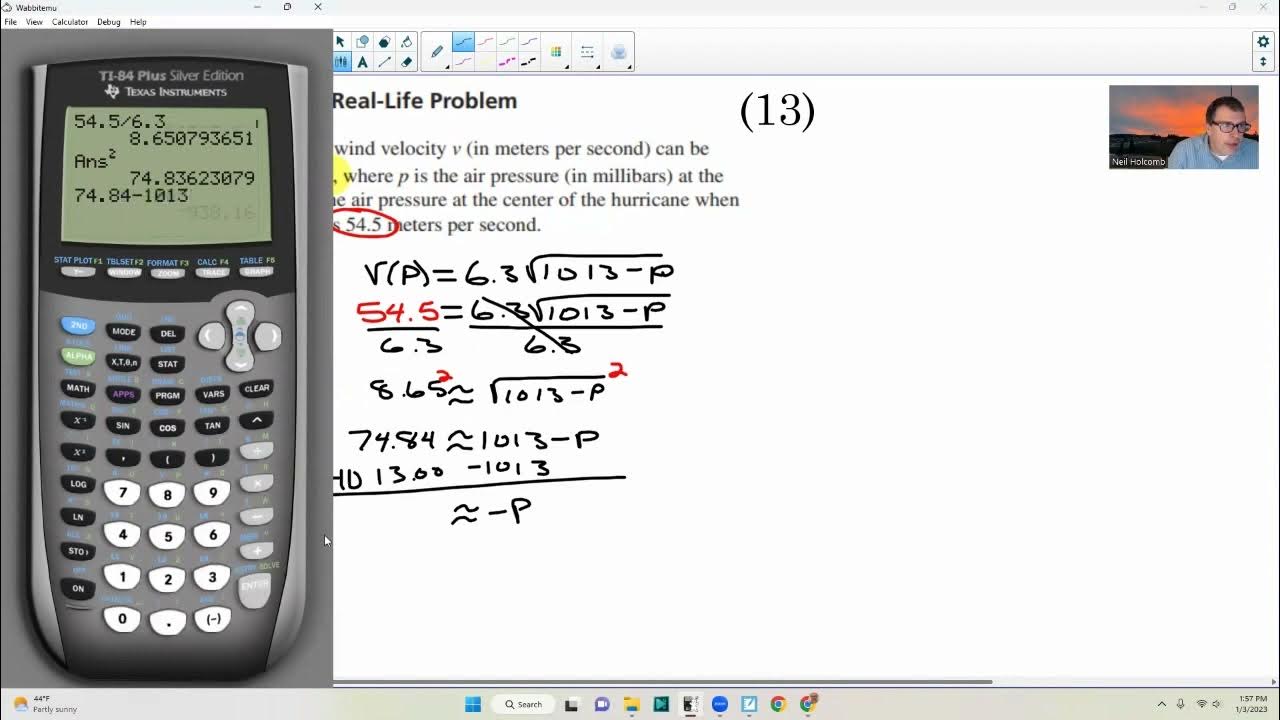 Wabbitemu
File View Calculator Debug Help
TI-84 Plus Silver Edition
TEXAS INSTRUMENTS
54.5/6.3
8.650793651
Ans²
74.83623079
74.84-1013
-938.16
STAT PLOT F1 TBLSET F2 FORMAT F3 CALC F4 TABLE F5
Y= WINDOW ZOOM TRACE GRAPH
2ND MODE DEL
ALPHA X,T,θ,n STAT
MATH APPS PRGM VARS CLEAR
X⁻¹ SIN COS TAN ^
X² , ( ) ÷
LOG 7 8 9 ×
LN 4 5 6 −
STO› 1 2 3 +
ON 0 . (−) ENTER
Real-Life Problem
(13)
wind velocity v (in meters per second) can be
, where p is the air pressure (in millibars) at the
e air pressure at the center of the hurricane when
s 54.5 meters per second.
V(P) = 6.3√1013-P
54.5 = 6.3√1013-P
6.3 6.3
8.65² ≈ √1013-P²
74.84 ≈ 1013-P
13.00 -1013
≈ -P
Neil Holcomb
44°F
Partly sunny
Search
1:57 PM
1/3/2023